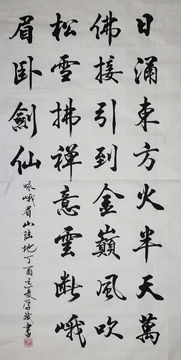 日涌東方火半天萬
佛接引到金巔風吹
松雪拂禪意雲斷峨
眉卧劍仙
咏峨眉山 地丁酉 書